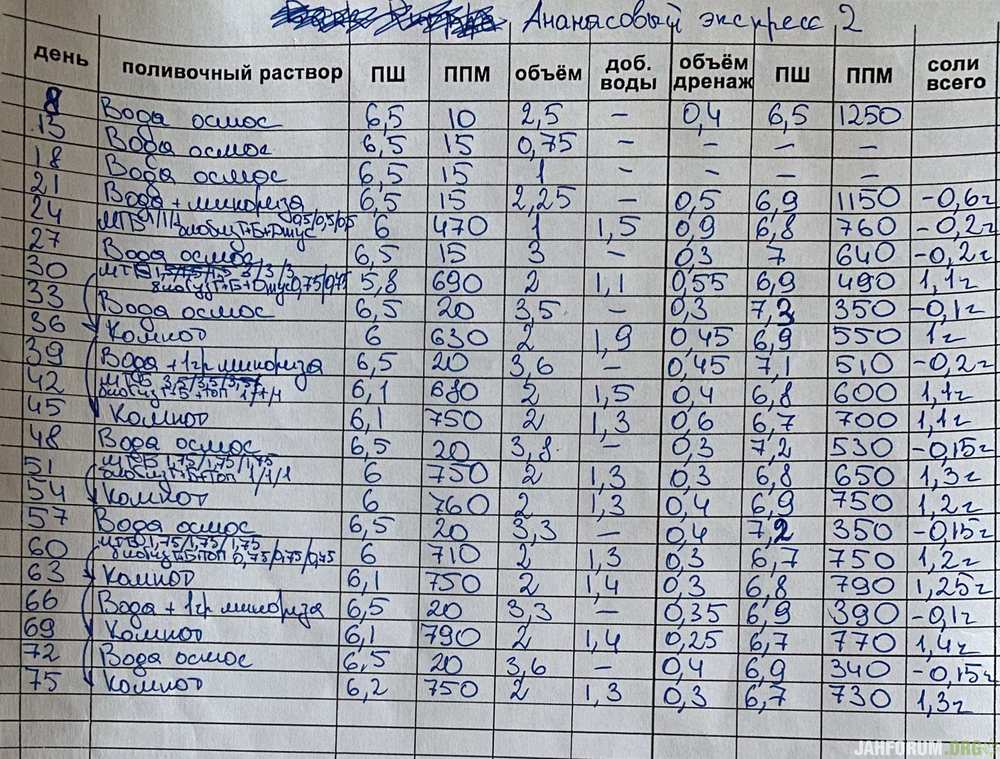 Ананасовый экспресс 2
день поливочный раствор ПШ ППМ объём доб. воды объём дренаж ПШ ППМ соли всего
8 Вода осмос 6,5 10 2,5 – 0,4 6,5 1250
15 Вода осмос 6,5 15 0,75 – – – –
18 Вода осмос 6,5 15 1 – – – –
21 Вода + микориза 6,5 15 2,25 – 0,5 6,9 1150 -0,6г
24 МТБ 1/1/1 6 470 1 1,5 0,9 6,8 760 -0,2г
27 Вода осмос 6,5 15 3 – 0,3 7 640 -0,2г
30 3/3/3 5,8 690 2 1,1 0,55 6,9 490 1,1г
33 Вода осмос 6,5 20 3,5 – 0,3 7,3 350 -0,1г
36 Компот 6 630 2 1,9 0,45 6,9 550 1г
39 Вода + 1гр микориза 6,5 20 3,6 – 0,45 7,1 510 -0,2г
42 МТБ 3,5/3,5/3,5/ 6,1 680 2 1,5 0,4 6,8 600 1,1г
45 Компот 6,1 750 2 1,3 0,6 6,7 700 1,1г
48 Вода осмос 6,5 20 3,8 – 0,3 7,2 530 -0,15г
51 МТБ 1,75/1,75/1,75 1/1/1 6 750 2 1,3 0,3 6,8 650 1,3г
54 Компот 6 760 2 1,3 0,4 6,9 750 1,2г
57 Вода осмос 6,5 20 3,3 – 0,4 7,2 350 -0,15г
60 МТБ 1,75/1,75/1,75 0,75/0,75/0,75 6 710 2 1,3 0,3 6,7 750 1,2г
63 Компот 6,1 750 2 1,4 0,3 6,8 790 1,25г
66 Вода + 1гр микориза 6,5 20 3,3 – 0,35 6,9 390 -0,1г
69 Компот 6,1 790 2 1,4 0,25 6,7 770 1,4г
72 Вода осмос 6,5 20 3,6 – 0,4 6,9 340 -0,15г
75 Компот 6,2 750 2 1,3 0,3 6,7 730 1,3г
JAHFORUM.ORG